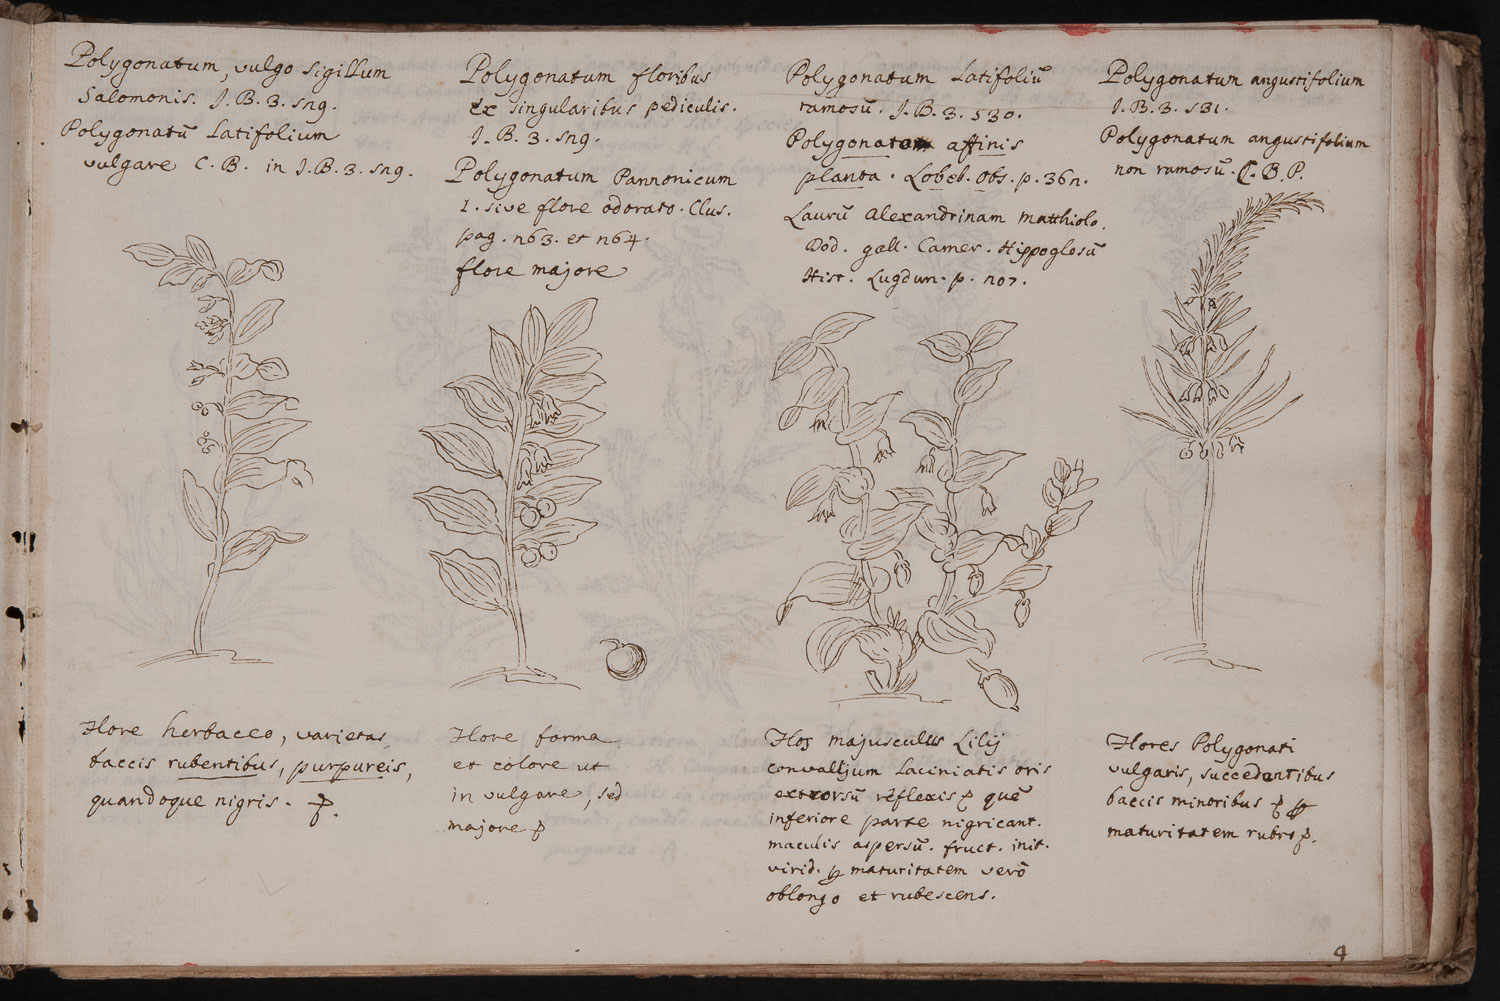 Polygonatum, vulgo sigillum
Salomonis. J. B. 3. 529.
Polygonatū Latifolium
vulgare C. B. in J. B. 3. 529.
Polygonatum floribus
ex singularibus pediculis.
J. B. 3. 529.
Polygonatum Pannonicum
1. sive flore odorato. Clus.
pag. 263. et 264.
flore majore
Polygonatum Latifoliū
ramosū. J. B. 3. 530.
Polygonatum affinis
planta. Lobel. Obs. p. 369.
Laurū Alexandrinam Matthiolo.
Dod. gall. Camer. Hippoglosū
Hist. Lugdun. p. 207.
Polygonatum angustifolium
J. B. 3. 531.
Polygonatum angustifolium
non ramosū. C. B. P.
Flore herbaceo, varietas
baccis rubentibus, purpureis,
quandoque nigris.
Flore forma
et colore ut
in vulgare, sed
majore
Flos majusculus Lilij
convallium Laciniatis oris
extrorsū reflexis quē
inferiore parte nigricant.
maculis aspersū. fruct. init.
virid. maturitatem verō
oblongo et rubescens.
Flores Polygonati
vulgaris, succedentibus
baccis minoribus
maturitatem rubro
4